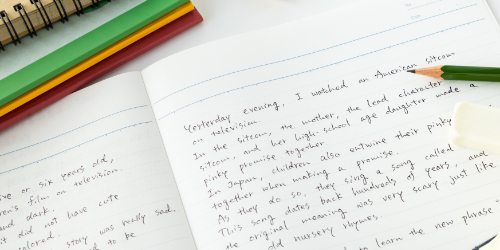 ve or six years old,
ren's film on television.
and dark.
it did not have cute
colored.
story was really sad.
to be
Yesterday evening, I watched an American sitcom
on television.
In the sitcom, the mother, the lead character
sitcom, and her high-school age daughter made a
pinky promise together
In Japan, children also entwine their pinky
together when making a promise.
As they do so, they sing a song called
This song dates back hundreds of years, and
the original meaning was very scary just like
old nursery rhymes.
to learn the new phrase